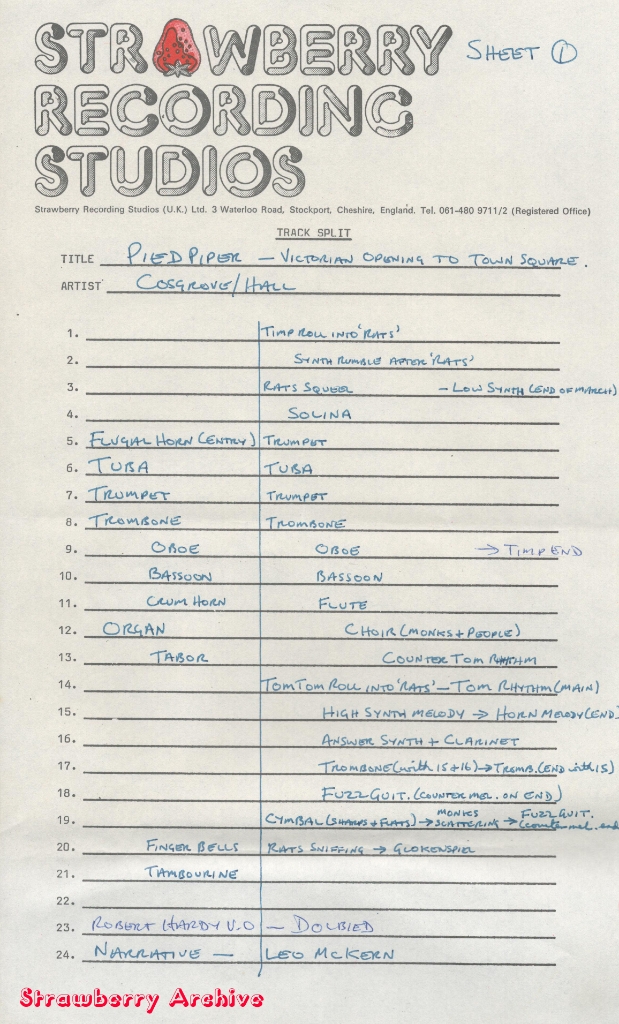 STRAWBERRY
SHEET ①
RECORDING
STUDIOS
Strawberry Recording Studios (U.K.) Ltd. 3 Waterloo Road, Stockport, Cheshire, England. Tel. 061-480 9711/2 (Registered Office)
TRACK SPLIT
TITLE PIED PIPER — VICTORIAN OPENING TO TOWN SQUARE.
ARTIST COSGROVE/HALL
1. TIMP ROLL INTO 'RATS'
2. SYNTH RUMBLE AFTER 'RATS'
3. RATS SQUEEL - LOW SYNTH (END OF MARCH)
4. SOLINA
5. FLUGAL HORN (ENTRY) TRUMPET
6. TUBA TUBA
7. TRUMPET TRUMPET
8. TROMBONE TROMBONE
9. OBOE OBOE → TIMP END
10. BASSOON BASSOON
11. CRUM HORN FLUTE
12. ORGAN CHOIR (MONKS + PEOPLE)
13. TABOR COUNTER TOM RHYTHM
14. TOM TOM ROLL INTO 'RATS' — TOM RHYTHM (MAIN)
15. HIGH SYNTH MELODY → HORN MELODY (END)
16. ANSWER SYNTH + CLARINET
17. TROMBONE (with 15+16) → TROMB. (END with 15)
18. FUZZ GUIT. (COUNTER MEL. ON END)
19. CYMBAL (SHARPS + FLATS) → MONKS SCATTERING → FUZZ GUIT. (counter mel. end
20. FINGER BELLS RATS SNIFFING → GLOKENSPIEL
21. TAMBOURINE
22.
23. ROBERT HARDY V.O — DOLBIED
24. NARRATIVE — LEO MCKERN
Strawberry Archive